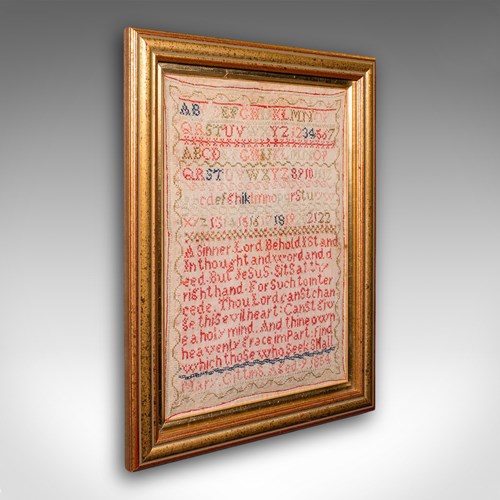 AB EFGHIJKLMNOP
QRSTUVWXYZ1234567
ABCD GHIJKLMNOP
QRSTUVWXYZ8910
bcdefghiklmnopqrstu
XYZ 13141516 1819 2122
A Sinner Lord Behold I Stand
In thought and word and d
eed. But JeSuS SitS at thy
right hand. For Such to inter
cede. Thou Lord canSt chan
ge thiS evil heart: CanSt giv
e a holy mind. And thine own
heavenly grace impart: find
which thoSe who Seek Shall
Mary Aged 9 1864